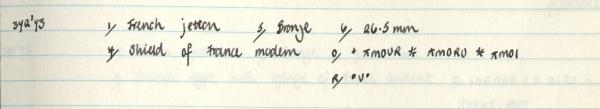 3421'43 1, French jetton 5, Bronze 6, 26.5 mm
4, Shield of France modern 0, + AMOUR * AMORU * AMOI
R, °V°